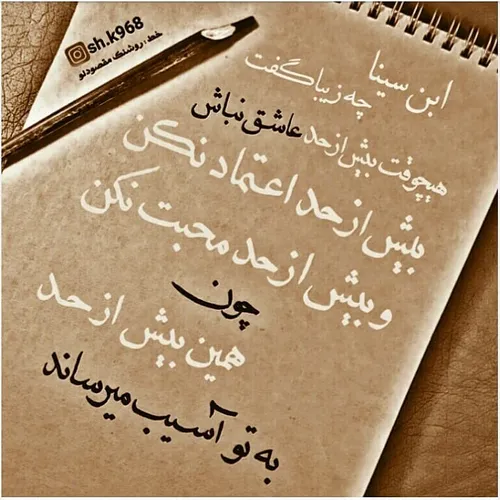 sh.k968
خط : روشنک مقصودلو
ابن سینا
چه زیبا گفت
هیچوقت بیش از حد عاشق نباش
بیش از حد اعتماد نکن
و بیش از حد محبت نکن
چون
همین بیش از حد
به تو آسیب میرساند